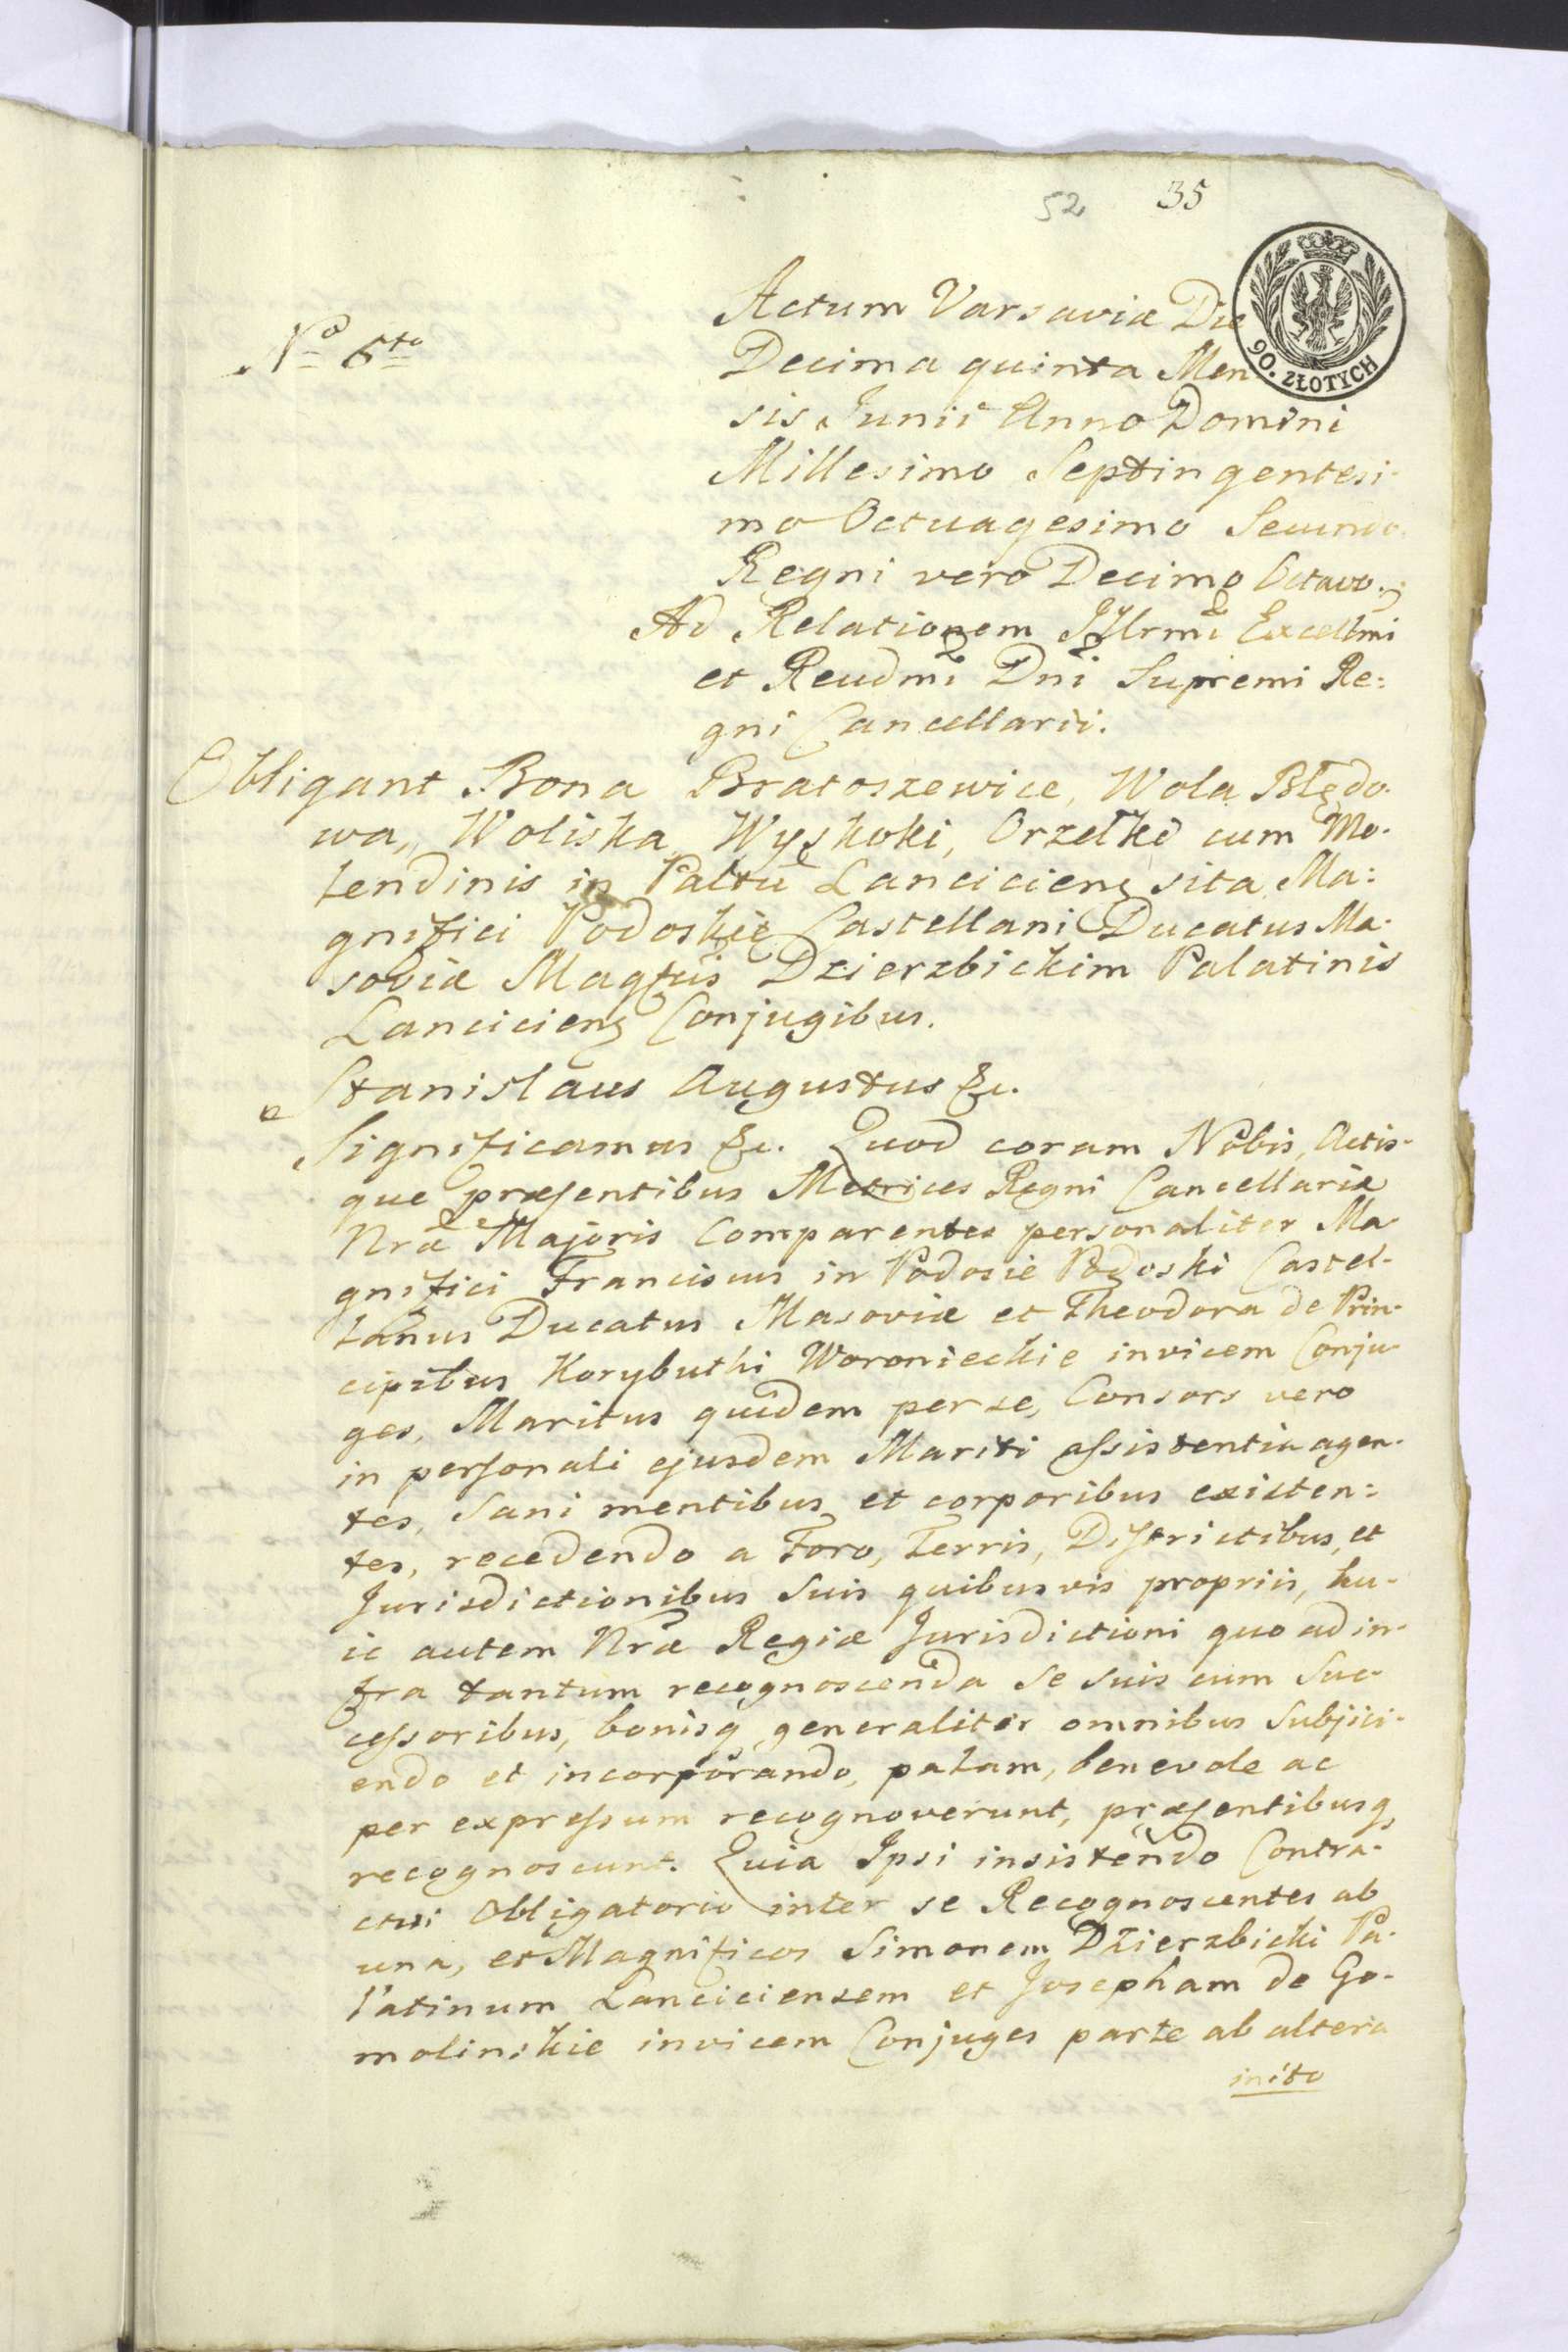 52 35
90. ZŁOTYCH
No 6to
Actum Varsaviæ Die
Decima quinta Men-
sis Junii Anno Domini
Millesimo Septingentesi-
mo Octuagesimo Secundo.
Regni vero Decimo Octavo.
Ad Relationem Illrmi Excellmi
et Reudmi Dni Supremi Re:
gni Cancellarii.
Obligant Bona Bratoszewice, Wola Błędo-
wa, Woliska, Wyskoki, Orzełki cum Mo-
lendinis in Paltu Lancicien sita Ma:
gnifici Podoskie Castellani Ducatus Ma-
soviæ Magcus Dzierzbickim Palatinis
Lancicien Conjugibus.
Stanislaus Augustus &c.
Significamus &c. Quod coram Nobis, Actis-
que præsentibus Metrices Regni Cancellariæ
Nræ Majoris Comparentes personaliter Ma
gnifici Franciscus in Podosie Podoski Castel-
lanus Ducatus Masoviæ et Theodora de Prin-
cipibus Korybuthi Woronieckie invicem Conju-
ges, Maritus quidem per se, Consors vero
in personali ejusdem Mariti assistentia agen-
tes, Sani mentibus et corporibus existen:
tes, recedendo a Foro, Terris, Districtibus, et
Jurisdictionibus Suis quibusvis propriis, hu-
ic autem Nræ Regiæ Jurisdictioni quo ad in-
fra tantum recognoscenda se suis cum Suc-
cessoribus, bonisq generaliter omnibus Subjici-
endo et incorporando, palam, benevole ac
per expressum recognoverunt, præsentibusq
recognoscunt. Quia Ipsi insistendo Contra-
ctui Obligatorio inter se Recognoscentes ab
una, et Magnificos Simonem Dzierzbicki Pa-
latinum Lanciciensem et Josepham de Go-
molinskie invicem Conjuges parte ab altera
inito